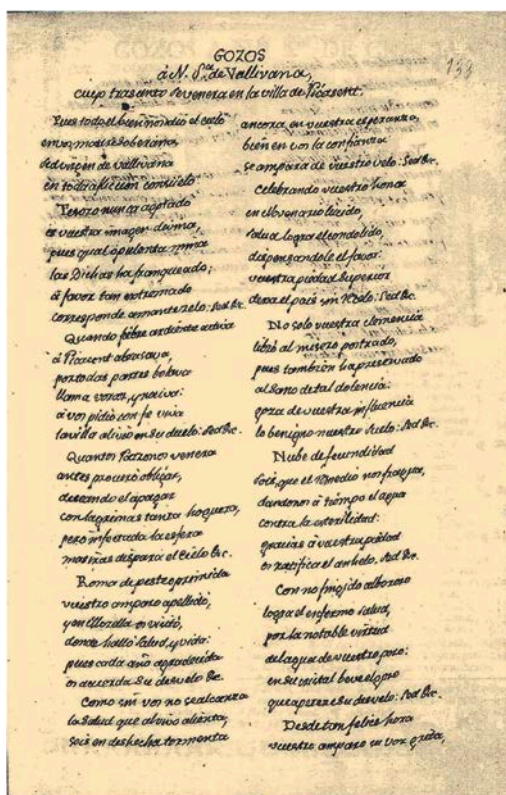 GOZOS
à N. S.ra de Vallivana,
cuyo trasunto se venera en la villa de Picasent.
133
Pues todo el bien nos dió el cielo
en vos, mar. soberana,
sed virgen de vallivana
en toda afliccion consuelo
Tesoro nunca agotado
es vuestra imagen divina,
pues qual opulenta mina
las Dichas ha franqueado;
à favor tan extremado
corresponde amante zelo: Sed &c.
Quando fiebre ardiente activa
à Picacent abrasava,
por todas partes
llama voraz, y nociva:
à vos pidió con fe viva
la villa alivio en su duelo: Sed &c.
Quantos Patronos venera
antes procuró obligar,
deseando el apagar
con lagrimas tanta hoguera,
pero infectada la esfera
mas iras dispara el Cielo &c.
Roma de peste oprimida
vuestro amparo apellidó,
y en Morella os
donde halló salud, y vida:
pues cada año agradecida
os acuerda su desvelo &c.
Como sin vos no se alcanza
la salud que alivio alienta,
sois en deshecha tormenta
ancora, en vuestra esperanza,
bien en vos la confianza
se ampara de vuestro velo: Sed &c.
Celebrando vuestro honor
en el Novenario lucido,
salud logra el condolido,
dispensandole el favor:
vuestra piedad superior
dexa el pais sin Recelo: Sed &c.
No solo vuestra clemencia
libró al misero postrado,
pues tambien ha preservado
al sano de tal dolencia:
goza de vuestra influencia
lo benigno nuestro suelo: Sed &c.
Nube de fecundidad
sois, que el Remedio nos fragua,
dandonos à tiempo el agua
contra la esterilidad:
gracias à vuestra piedad
os ratifica el anhelo. Sed &c.
Con no fingido alborozo
logra el enfermo salud,
por la notable virtud
del agua de vuestro pozo:
en su cristal beve el gozo
que apetece su desvelo: Sed &c.
Desde tan felice hora
vuestro amparo su voz grita,